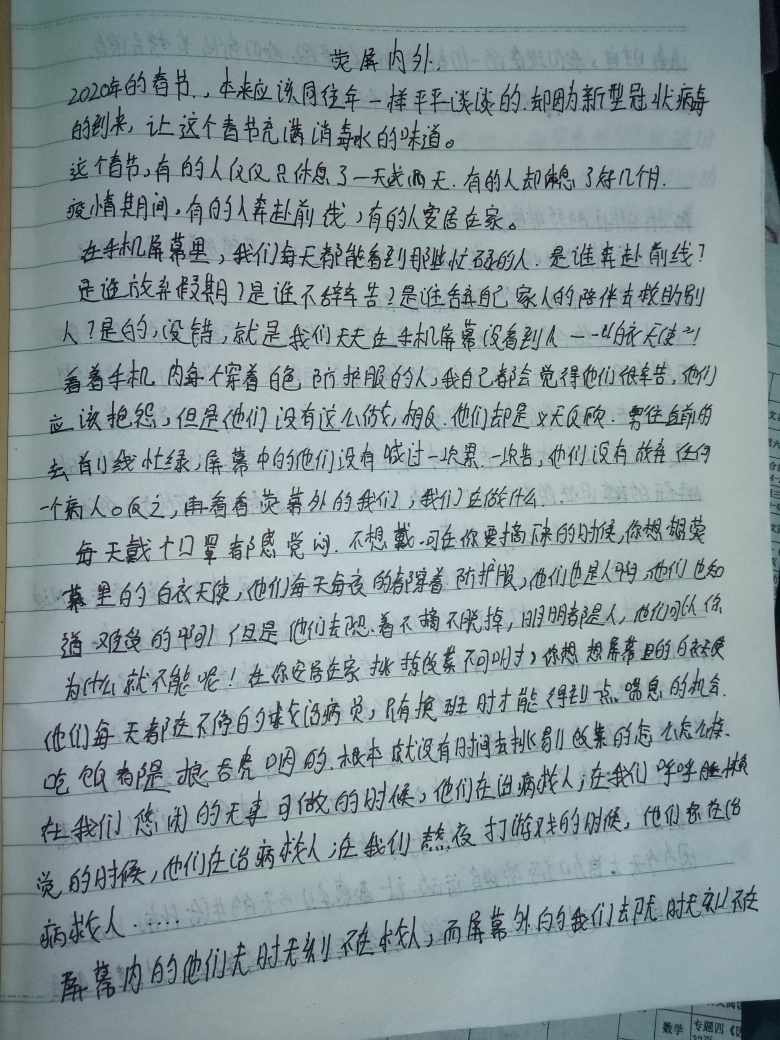 荧屏内外.
2020年的春节.,本来应该同往年一样平平淡淡的.却因为新型冠状病毒
的到来,让这个春节充满消毒水的味道。
这个春节,有的人仅仅只休息了一天或两天.有的人却休息了好几个月.
疫情期间,有的人奔赴前线,有的人安居在家。
在手机屏幕里,我们每天都能看到那些忙碌的人.是谁奔赴前线?
是谁放弃假期?是谁不辞辛苦?是谁舍弃自己家人的陪伴去救助别
人?是的,没错,就是我们天天在手机屏幕没看到人——“白衣天使”!
看着手机内每个穿着白色防护服的人,我自己都会觉得他们很辛苦,他们
应该抱怨,但是他们没有这么做,相反.他们却是义无反顾.勇往直前的
去前线忙绿,屏幕中的他们没有喊过一次累.一次苦,他们没有放弃任何
一个病人。反之,再看看荧幕外的我们,我们在做什么.
每天戴个口罩都感觉闷.不想戴.可在你要摘下来的时候,你想想荧
幕里的白衣天使,他们每天每夜的都穿着防护服,他们也是人啊,他们也知
道难受的啊!但是他们去 着不摘不脱掉,明明都是人,他们可以你
为什么就不能呢!在你安居在家挑拣饭菜不可口时,你想想屏幕里的白衣天使
他们每天都在不停的救治病员,只有换班时才能得到一点喘息的机会.
吃饭都是狼吞虎咽的.根本就没有时间去挑剔饭菜的怎么怎么样.
在我们悠闲的无事可做的时候,他们在治病救人;在我们呼呼睡大
觉的时候,他们在治病救人;在我们熬夜打游戏的时候,他们都在治
病救人......
屏幕内的他们无时无刻不在救人,而屏幕外的我们却无时无刻不在
数学 专题四